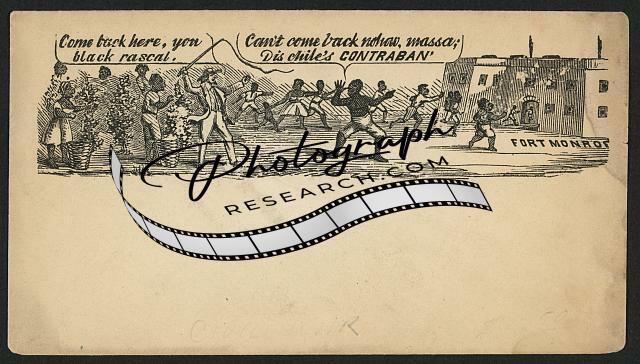 Come back here, you
black rascal.
Can't come back nohow, massa;
Dis chile's CONTRABAN'
FORT MONRO
Photograph
RESEARCH.COM